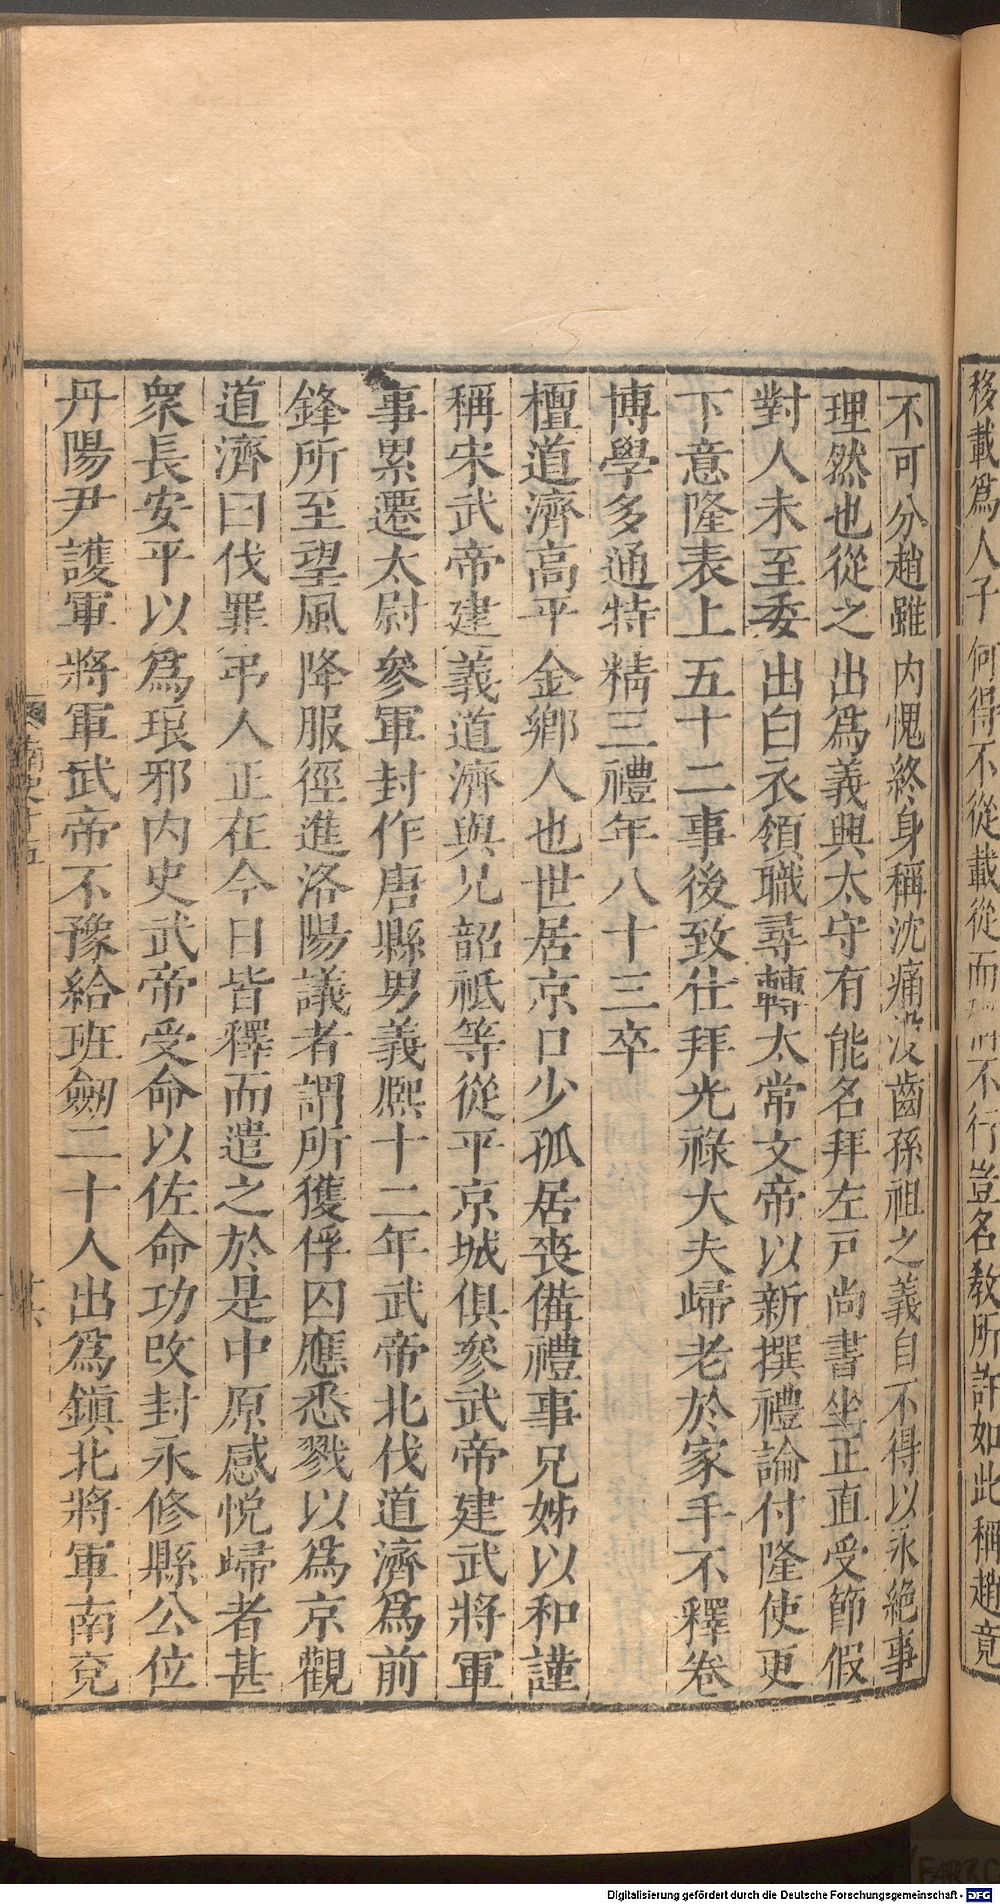 移載爲人子何得不從載從而不行豈名教所許如此稱趙竟
不可分趙雖内愧終身稱沈痛没齒孫祖之義自不得以永絶事
理然也從之出爲義興太守有能名拜左戸尚書坐正直受節假
對人未至委出白衣領職尋轉太常文帝以新撰禮論付隆使更
下意隆表上五十二事後致仕拜光祿大夫歸老於家手不釋卷
博學多通特精三禮年八十三卒
檀道濟高平金鄉人也世居京口少孤居喪備禮事兄姊以和謹
稱宋武帝建義道濟與兄韶祗等從平京城俱參武帝建武將軍
事累遷太尉參軍封作唐縣男義熙十二年武帝北伐道濟爲前
鋒所至望風降服徑進洛陽議者謂所獲俘囚應悉戮以爲京觀
道濟曰伐罪弔人正在今日皆釋而遣之於是中原感悅歸者甚
衆長安平以爲琅邪内史武帝受命以佐命功改封永修縣公位
丹陽尹護軍將軍武帝不豫給班劒二十人出爲鎭北將軍南兖
南史十五
十六
Digitalisierung gefördert durch die Deutsche Forschungsgemeinschaft - DFG